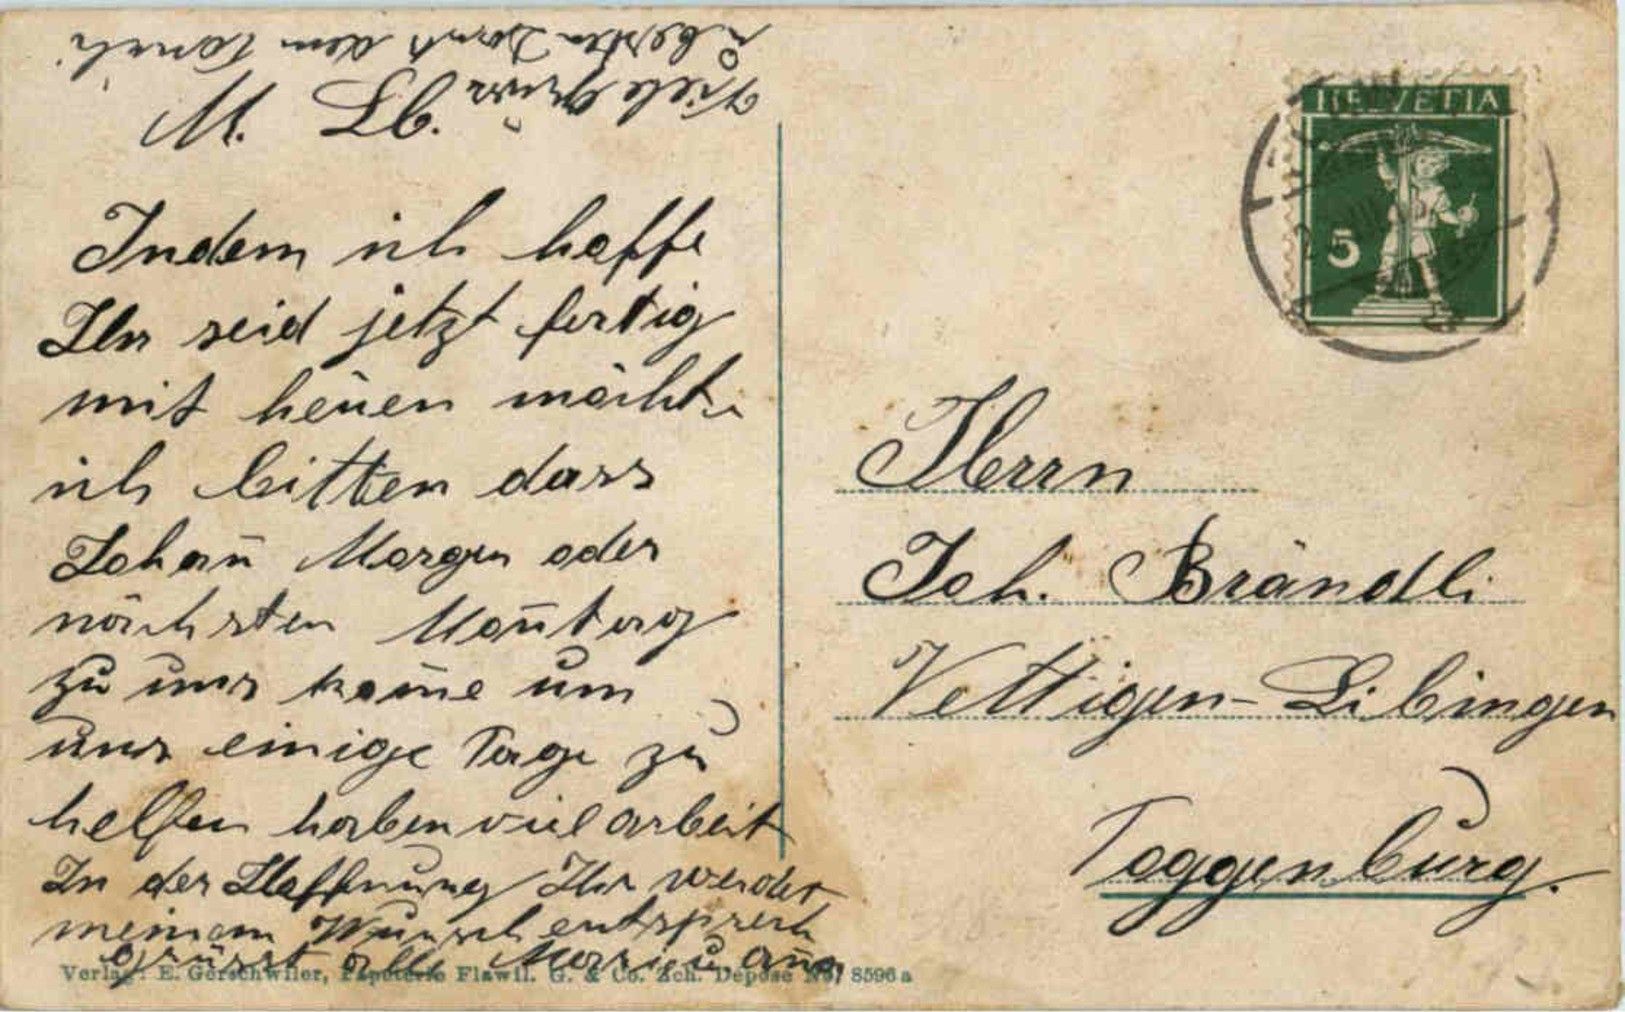 M. Lb.
Indem ich hoffe
Ihr seid jetzt fertig
mit heüen möchte
ich bitten dass
Johan̄ Morgen oder
nächsten Mon̄tag
zu uns kom̄e um
uns einige Tage zu
helfen haben viel arbeit
In der Hoffnung Ihr werdet
meinem Wunsch entsprech
grüsst alle
Viele Grüsse
u besten Dank dem
HELVETIA
5
Herrn
Joh. Brändli
Vettigen-Libingen
Toggenburg.
Verlag: E. Gerschwiler, Papeterie Flawil. G. & Co. Zch. Déposé No. 8596a